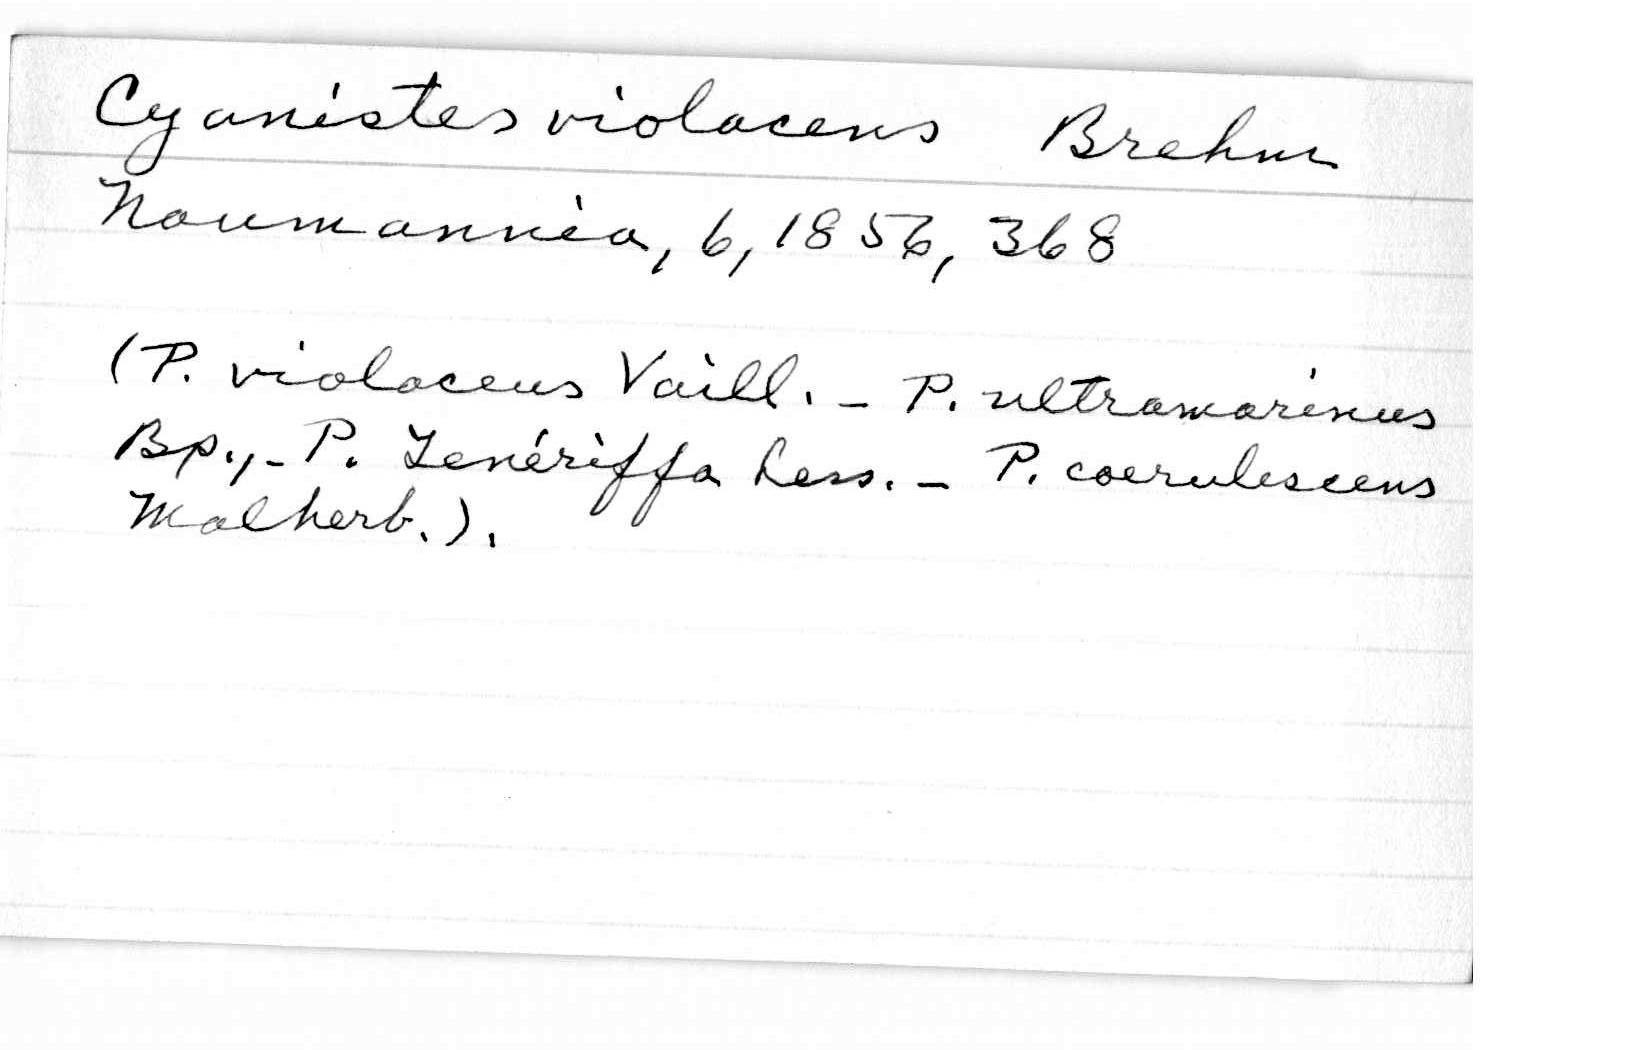 Cyanistes violaceus Brehm
Naumannia, 6, 1856, 368
(P. violaceus Vaill. - P. ultramarinus
Bp., - P. Tenériffa Less. - P. coerulescens
Malherb.).